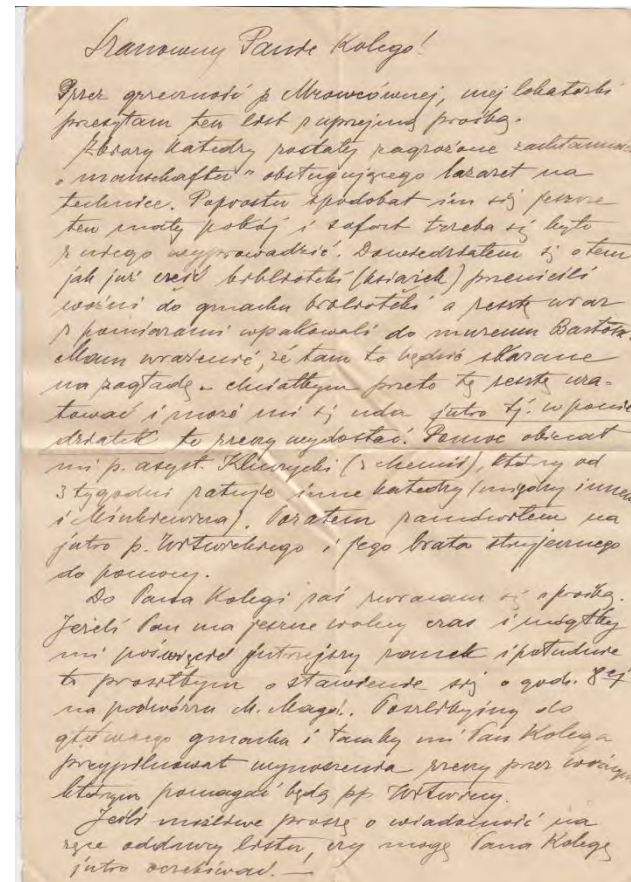 Szanowny Panie Kolego!
Przez grzeczność p. Mrowcównej, mej lokatorki
przesyłam ten list z uprzejmą prośbą.
Zbiory katedry zostały zagrożone zachłannością
"manschaftu" obsługującego lazaret na
technice. Poprostu spodobał im się jeszcze
ten mały pokój i sofort trzeba się było
z niego wyprowadzić. Dowiedziałem się o tem
jak już część biblioteki (książek) przenieśli
woźni do gmachu biblioteki a resztę wraz
z pomiarami wpakowali do muzeum
Mam wrażenie, że tam to będzie skazane
na zagładę - chciałbym przeto tę resztę ura-
tować i może mi się uda jutro tj. w ponie
działek te rzeczy wydostać. Pomoc obiecał
mi p. asyst. (z chemii), który od
3 tygodni ratuje inne katedry (między innemi
i Minkiewicza). Pozatem zamówiłem na
jutro p. Witwickiego i jego brata stryjecznego
do pomocy.
Do Pana Kolegi zaś zwracam się z prośbą.
Jeżeli Pan ma jeszcze wolny czas i mógłby
mi poświęcić jutrzejszy ranek i południe
to prosiłbym o stawienie się o godz. 8ej
na podwórzu M. Magd.. Poszlibyśmy do
głównego gmachu i tamby mi Pan Kolega
przypilnował wynoszenia rzeczy przez woźnych
którym pomagać będą pp. Witwiccy.
Jeśli możliwe proszę o wiadomość na
ręce oddawcy listu, czy mogę Pana Kolegę
jutro oczekiwać. —